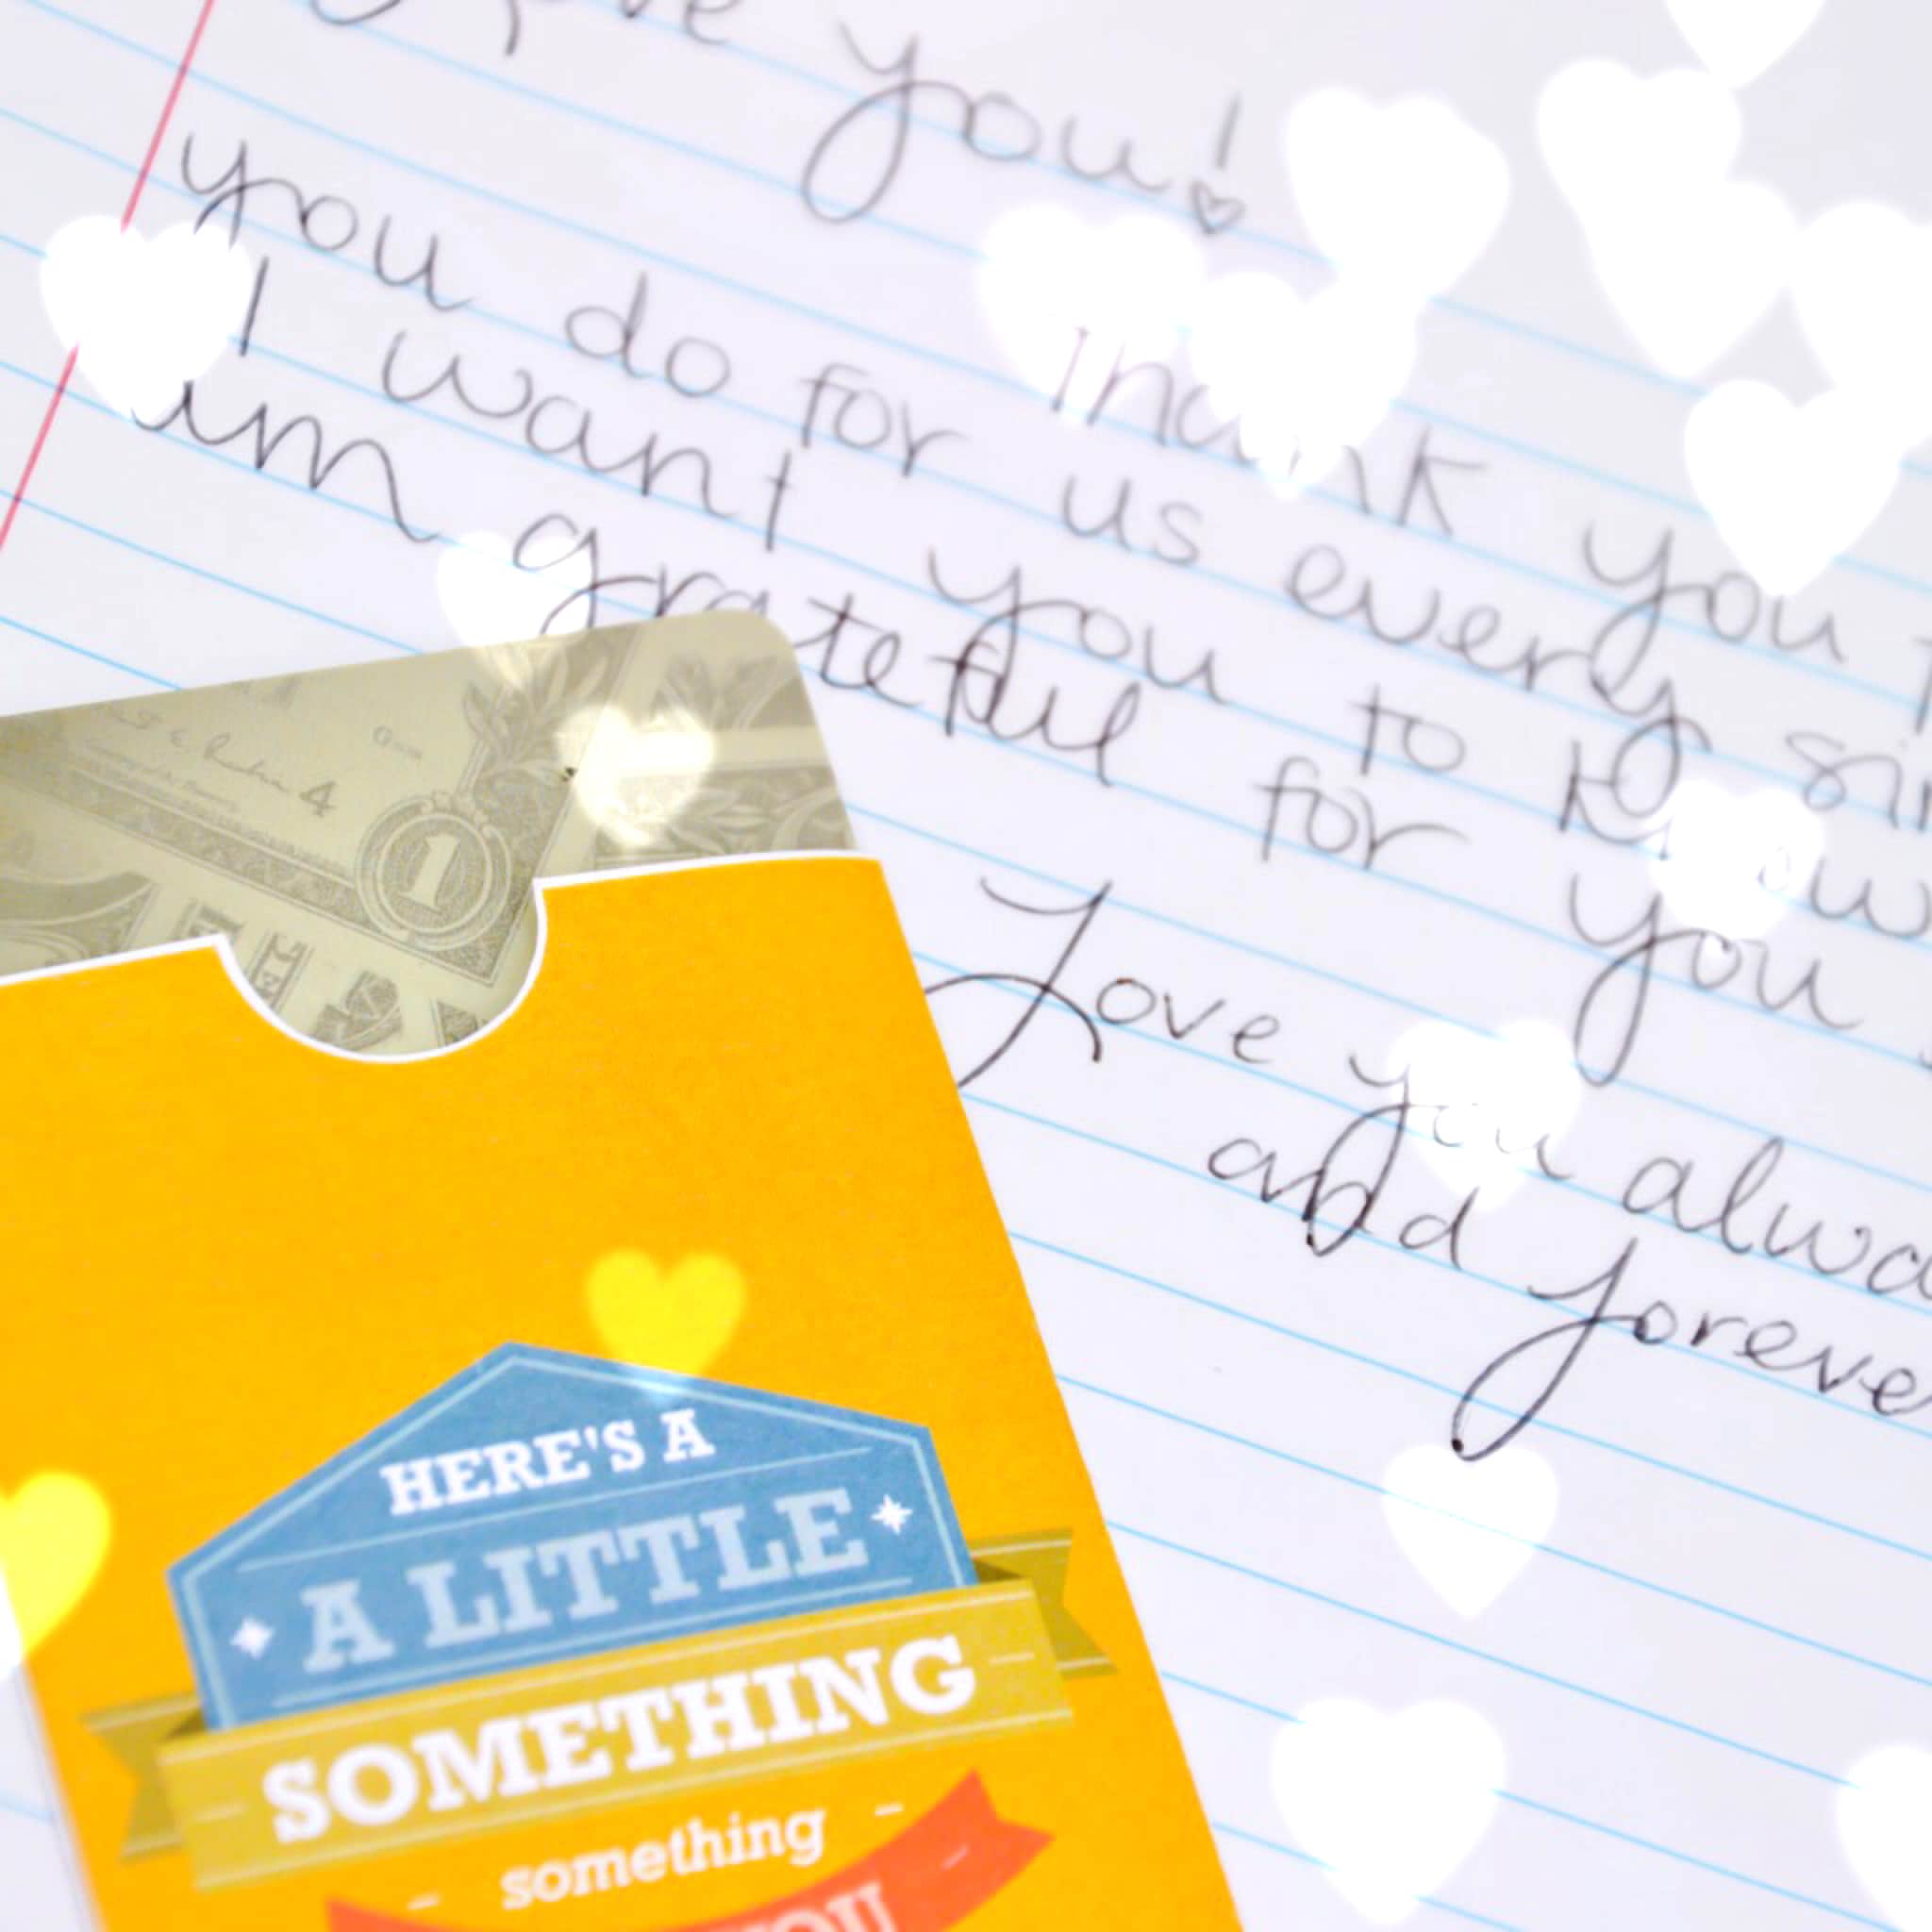 Love you!
Thank you
you do for us every
I want you to know
im grateful for you
Love you
and
1
HERE'S A
A LITTLE
SOMETHING
something
YOU